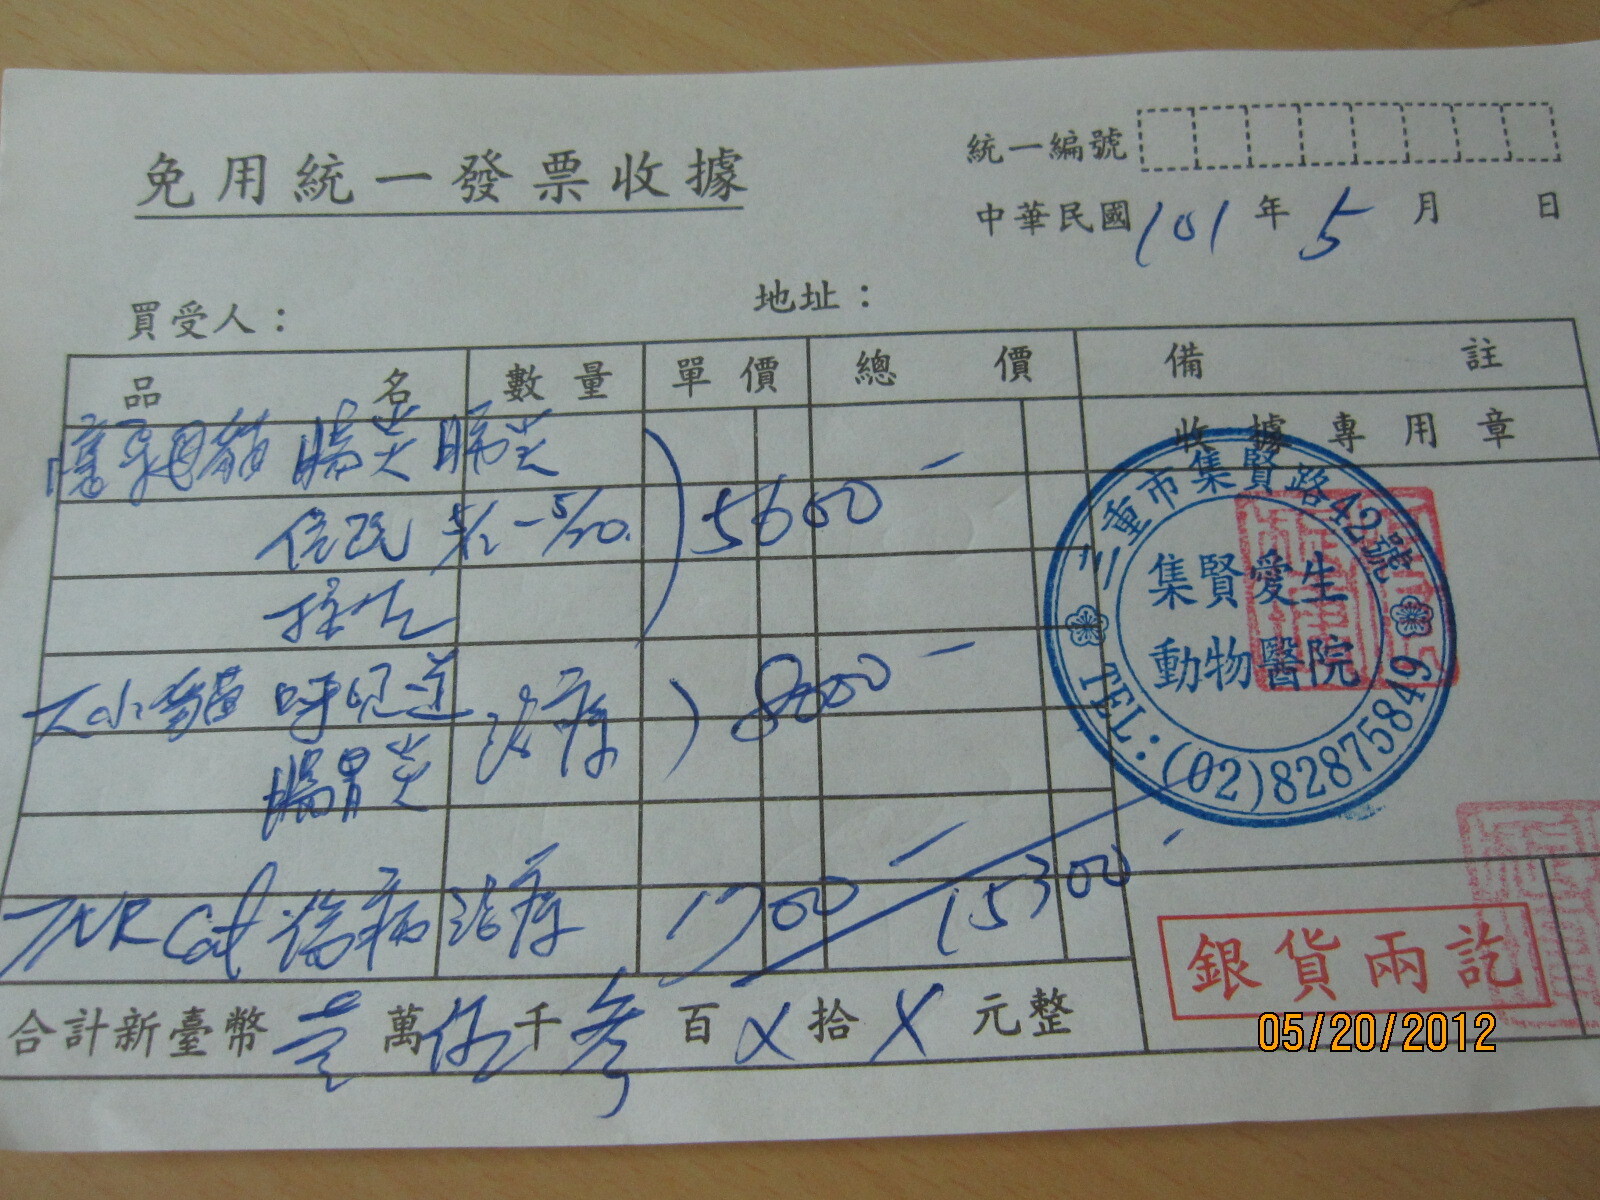 免用統一發票收據
統一編號
中華民國 101 年 5 月 日
買受人：
地址：
品名 數量 單價 總價 備註
收據專用章
貓 腸炎 肺炎
住院 5/20.
5600
大小貓 呼吸道 治療 8000
腸胃炎
TNR Cat 傷病 治療 1700 15300
合計新臺幣 壹 萬 伍 千 參 百 X 拾 X 元整
三重市集賢路42號
集賢愛生
動物醫院
TEL:(02)82875849
銀貨兩訖
05/20/2012